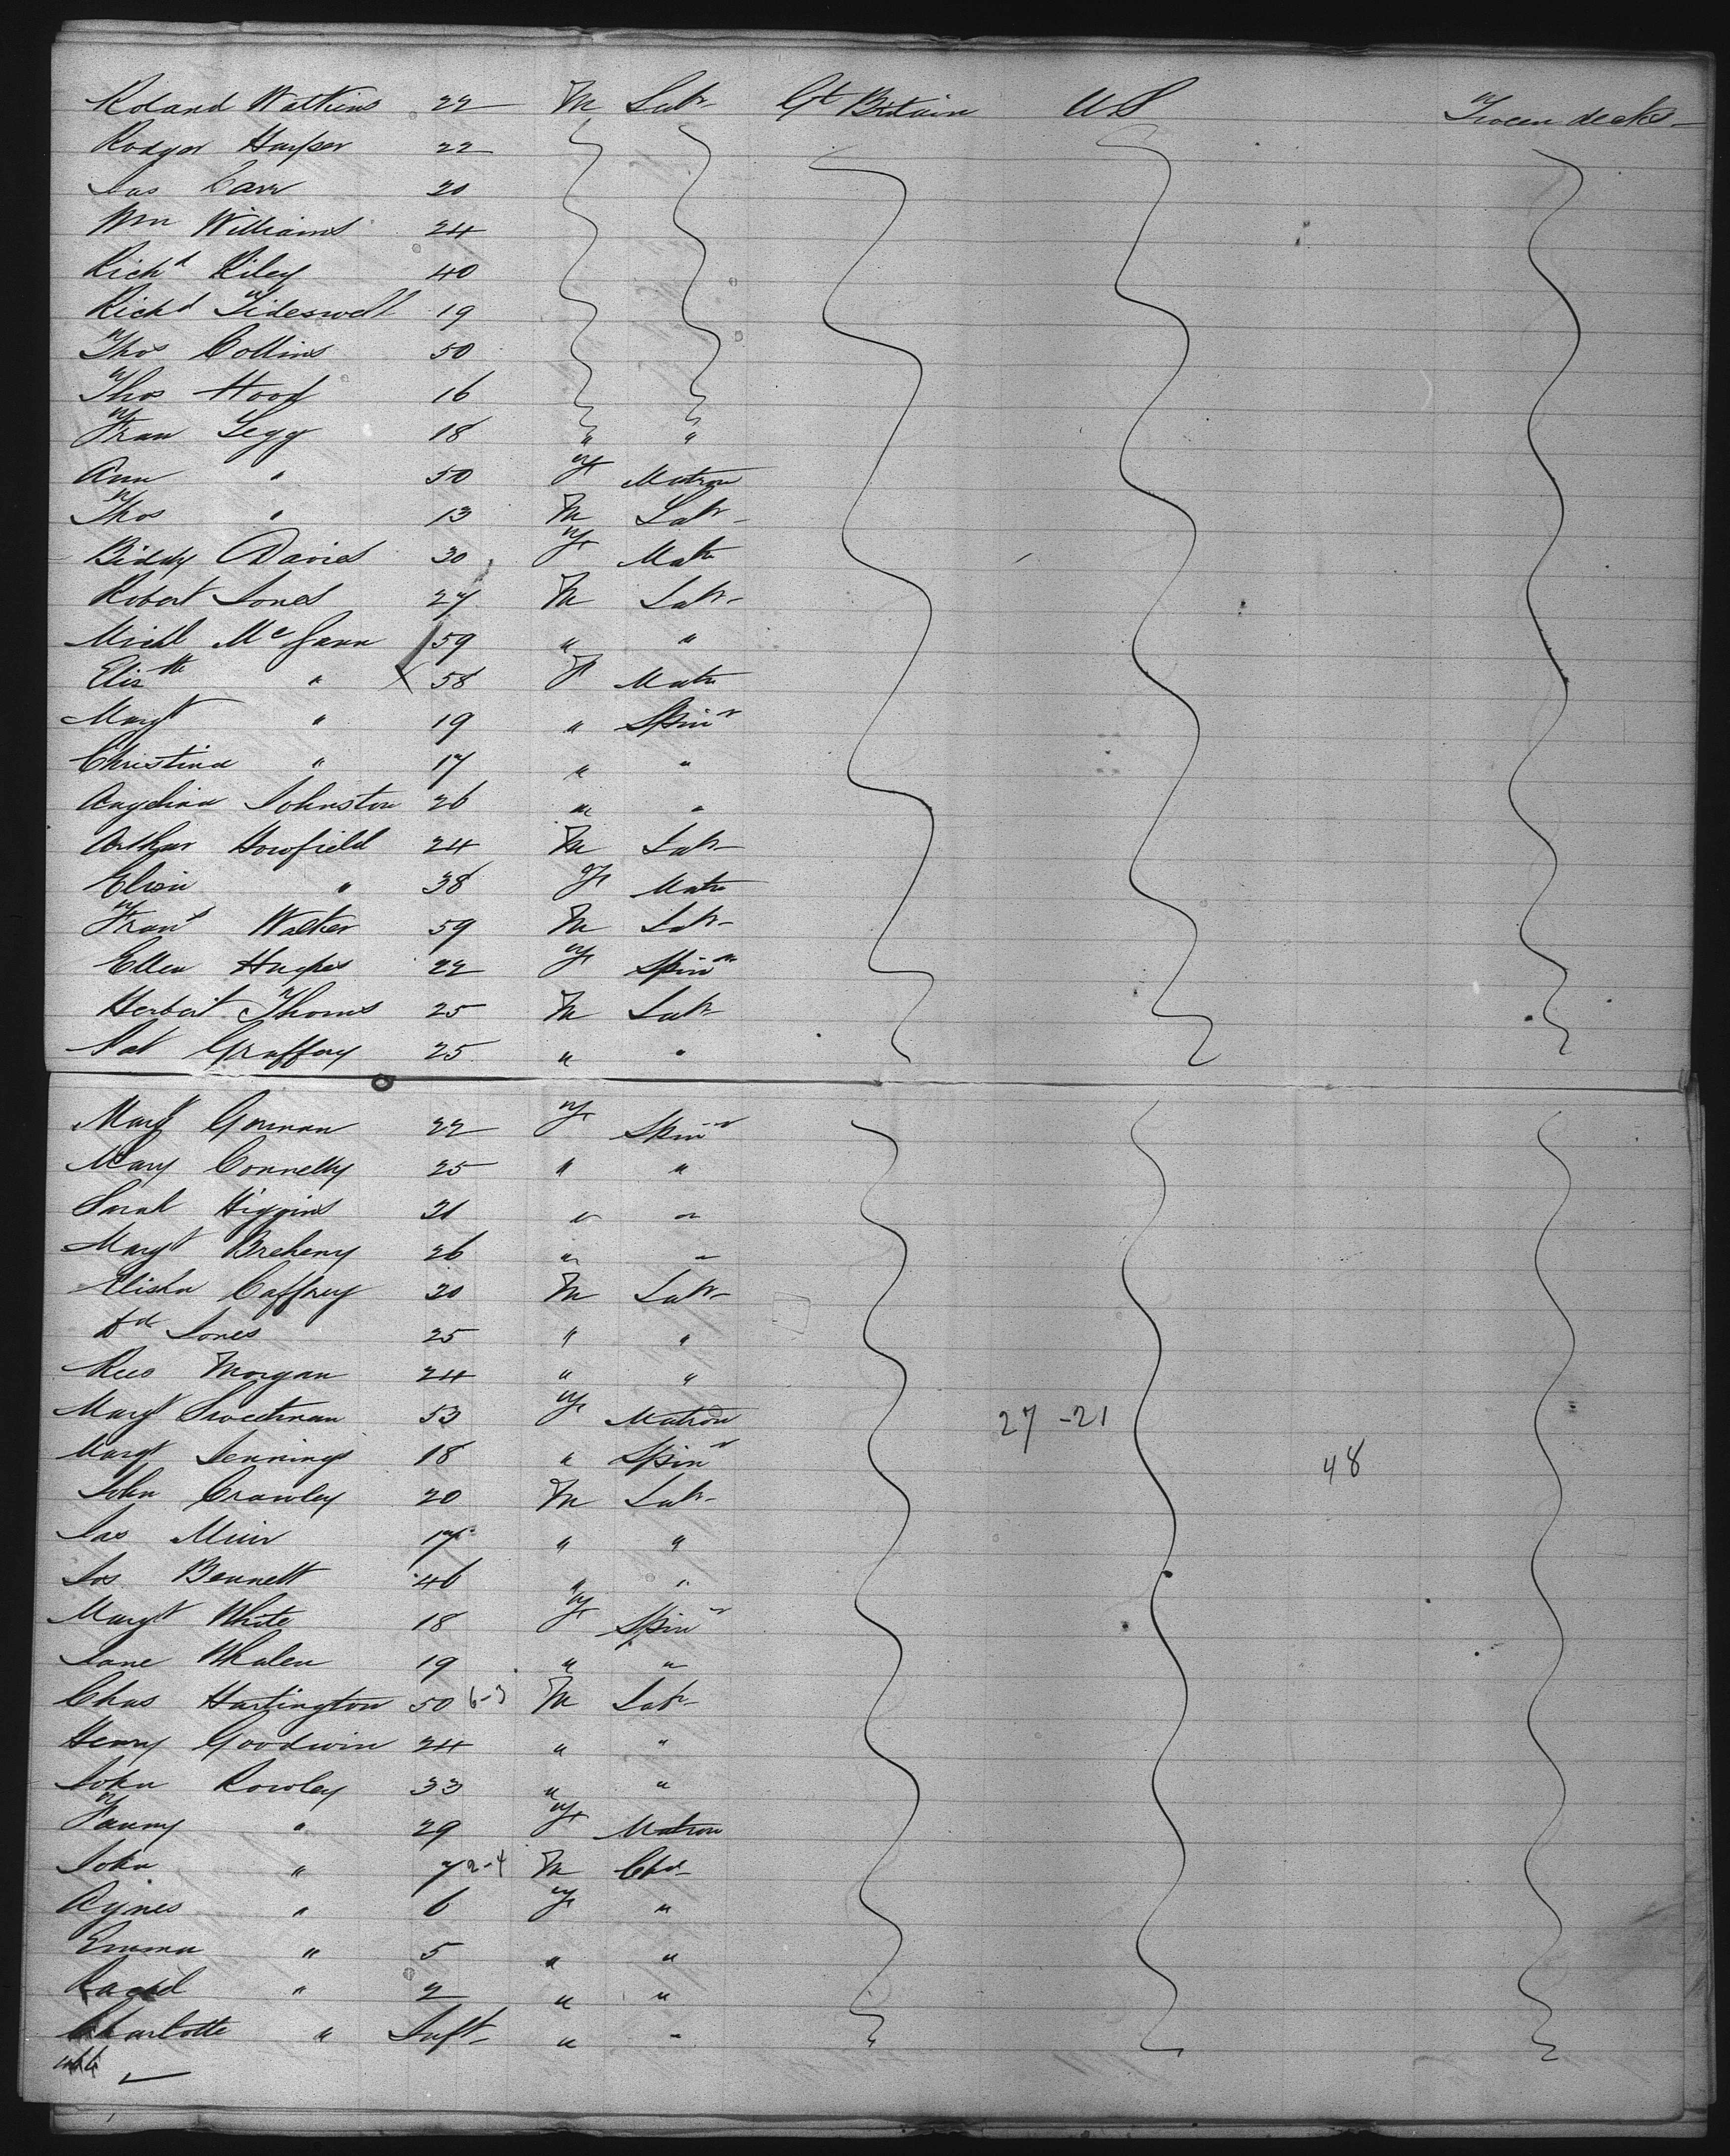 Roland Watkins 22 M Labr Gt Britain US Tween decks
Rodger Harper 22
Jas Carr 20
Wm Williams 24
Richd Riley 40
Richd Tideswell 19
Thos Collins 50
Thos Hood 16
Fran Legg 18 " "
Ann " 50 F Matron
Thos " 13 M Labr
Biddy Davies 30 F Matn
Robert Jones 27 M Labr
Michl McGann 59 " "
Elizth " 58 F Matn
Margt " 19 " Spinr
Christina " 17 " "
Angelina Johnston 26 " "
Arthur Howfield 24 M Labr
Eliza " 38 F Matn
Frans Walker 59 M Labr
Ellen Hughes 22 F Spinr
Herbert Thomas 25 M Labr
Pat Graffery 25 " "
Margt Gorman 22 F Spinr
Mary Connelly 25 " "
Sarah Higgins 21 " "
Margt Breheny 26 " "
Elisha Caffrey 20 M Labr
Ed Jones 25 " "
Rees Morgan 24 " "
Margt Sweetman 53 F Matron 27-21
Margt Jennings 18 " Spinr 48
John Crawley 20 M Labr
Jas Muir 17 " "
Jos Bennett 46 " "
Margt White 18 F Spinr
Jane Whalen 19 " "
Chas Hartington 50 6-3 M Labr
Henry Goodwin 24 " "
John Rowley 33 " "
Fanny " 29 F Matron
John " 7 2-4 M Chd
Agnes " 6 F "
Emma " 5 " "
Rachel " 2 " "
Charlotte " Inft " "